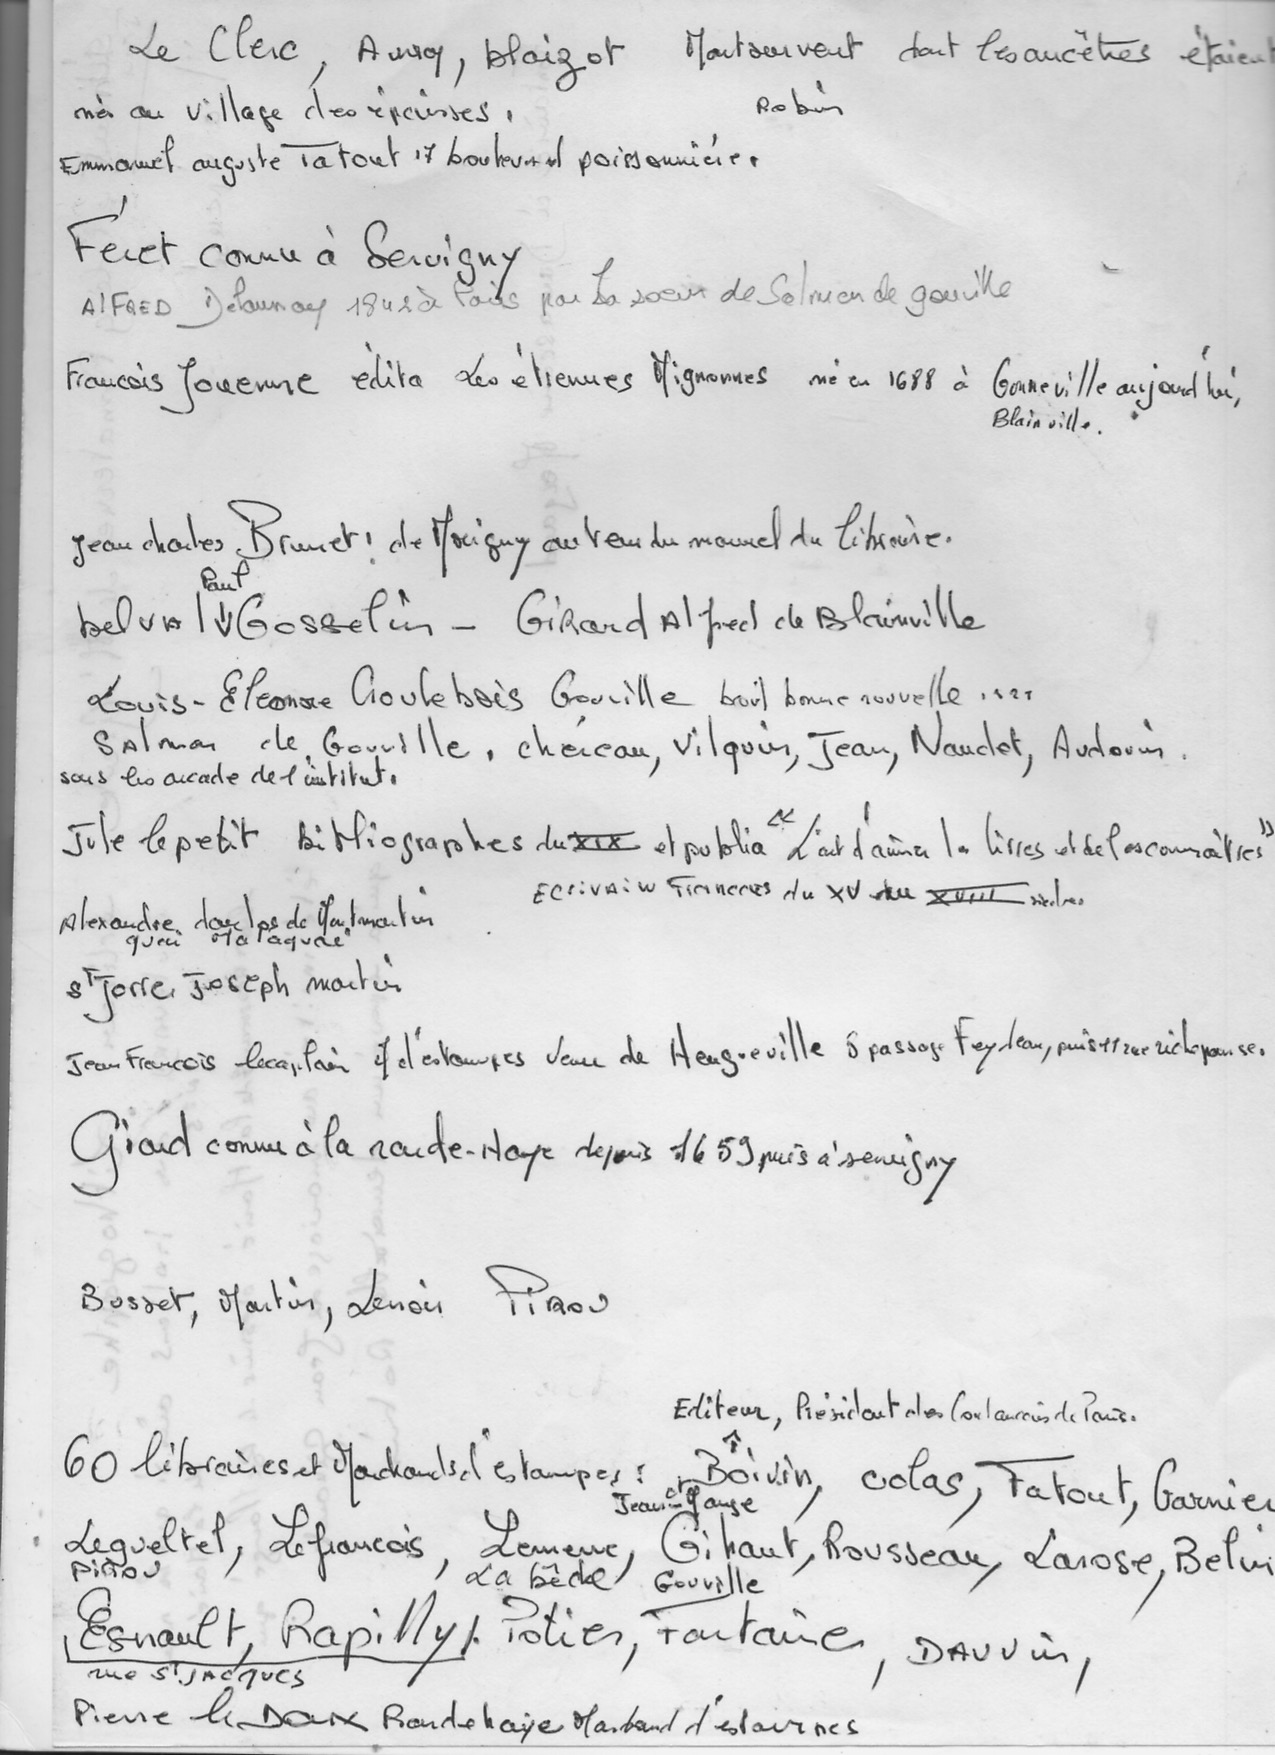 Le Clerc, Auray, blaizot Montsurvent dont les ancêtres étaient
nés au village des épaisses. Robin
Emmanuel auguste Tatout 17 boulevard poissonnière.
Féret connu à Servigny
AlFRED Delaunay 1842 à Paris par la soeur de Salmon de gouville
Francois Jouenne édita Les étrennes Mignonnes né en 1688 à Gonneville aujourd'hui,
Blainville.
Jean charles Brunet! de Morigny auteur du manuel du libraire.
Paul
belVAl Gosselin - GiRard Alfred de Blainville
Louis-Eléonore Goulebois Gouville boul bonne nouvelle ....
SAlmon de Gouville, chéreau, Vilquin, Jean, Naudet, Audouin.
sous les arcade de l'institut.
Jule le petit bibliographes du XIX et publia "L'art d'aimer les livres et de les connaitres"
ECrivaiN Francais du XV au XVIII siècles
Alexandre de Montmartin
quai Malaquai
St Jorre Joseph martin
Jean Francois lecaplain d'estampes venu de Heugueville 5 passage Feydeau, puis 11 rue richepanse.
Giard connu à la ronde-Haye depuis 1659 puis à servigny
Bosset, Martin, Lenoir PiRou
Editeur, Président des Coutancais de Paris.
60 libraires et Marchands d'estampes: Boivin, colas, Fatout, Garnier
Jean-
Lequeltel, Lefrancois, Lemerre, Gihaut, Rousseau, Larose, Belin
PiRou La bêche Gouville
Esnault, Rapilly, Potier, Fontaine, DAUVin,
rue St JACQUES
Pierre le Doux Rondehaye Marchand d'estampes